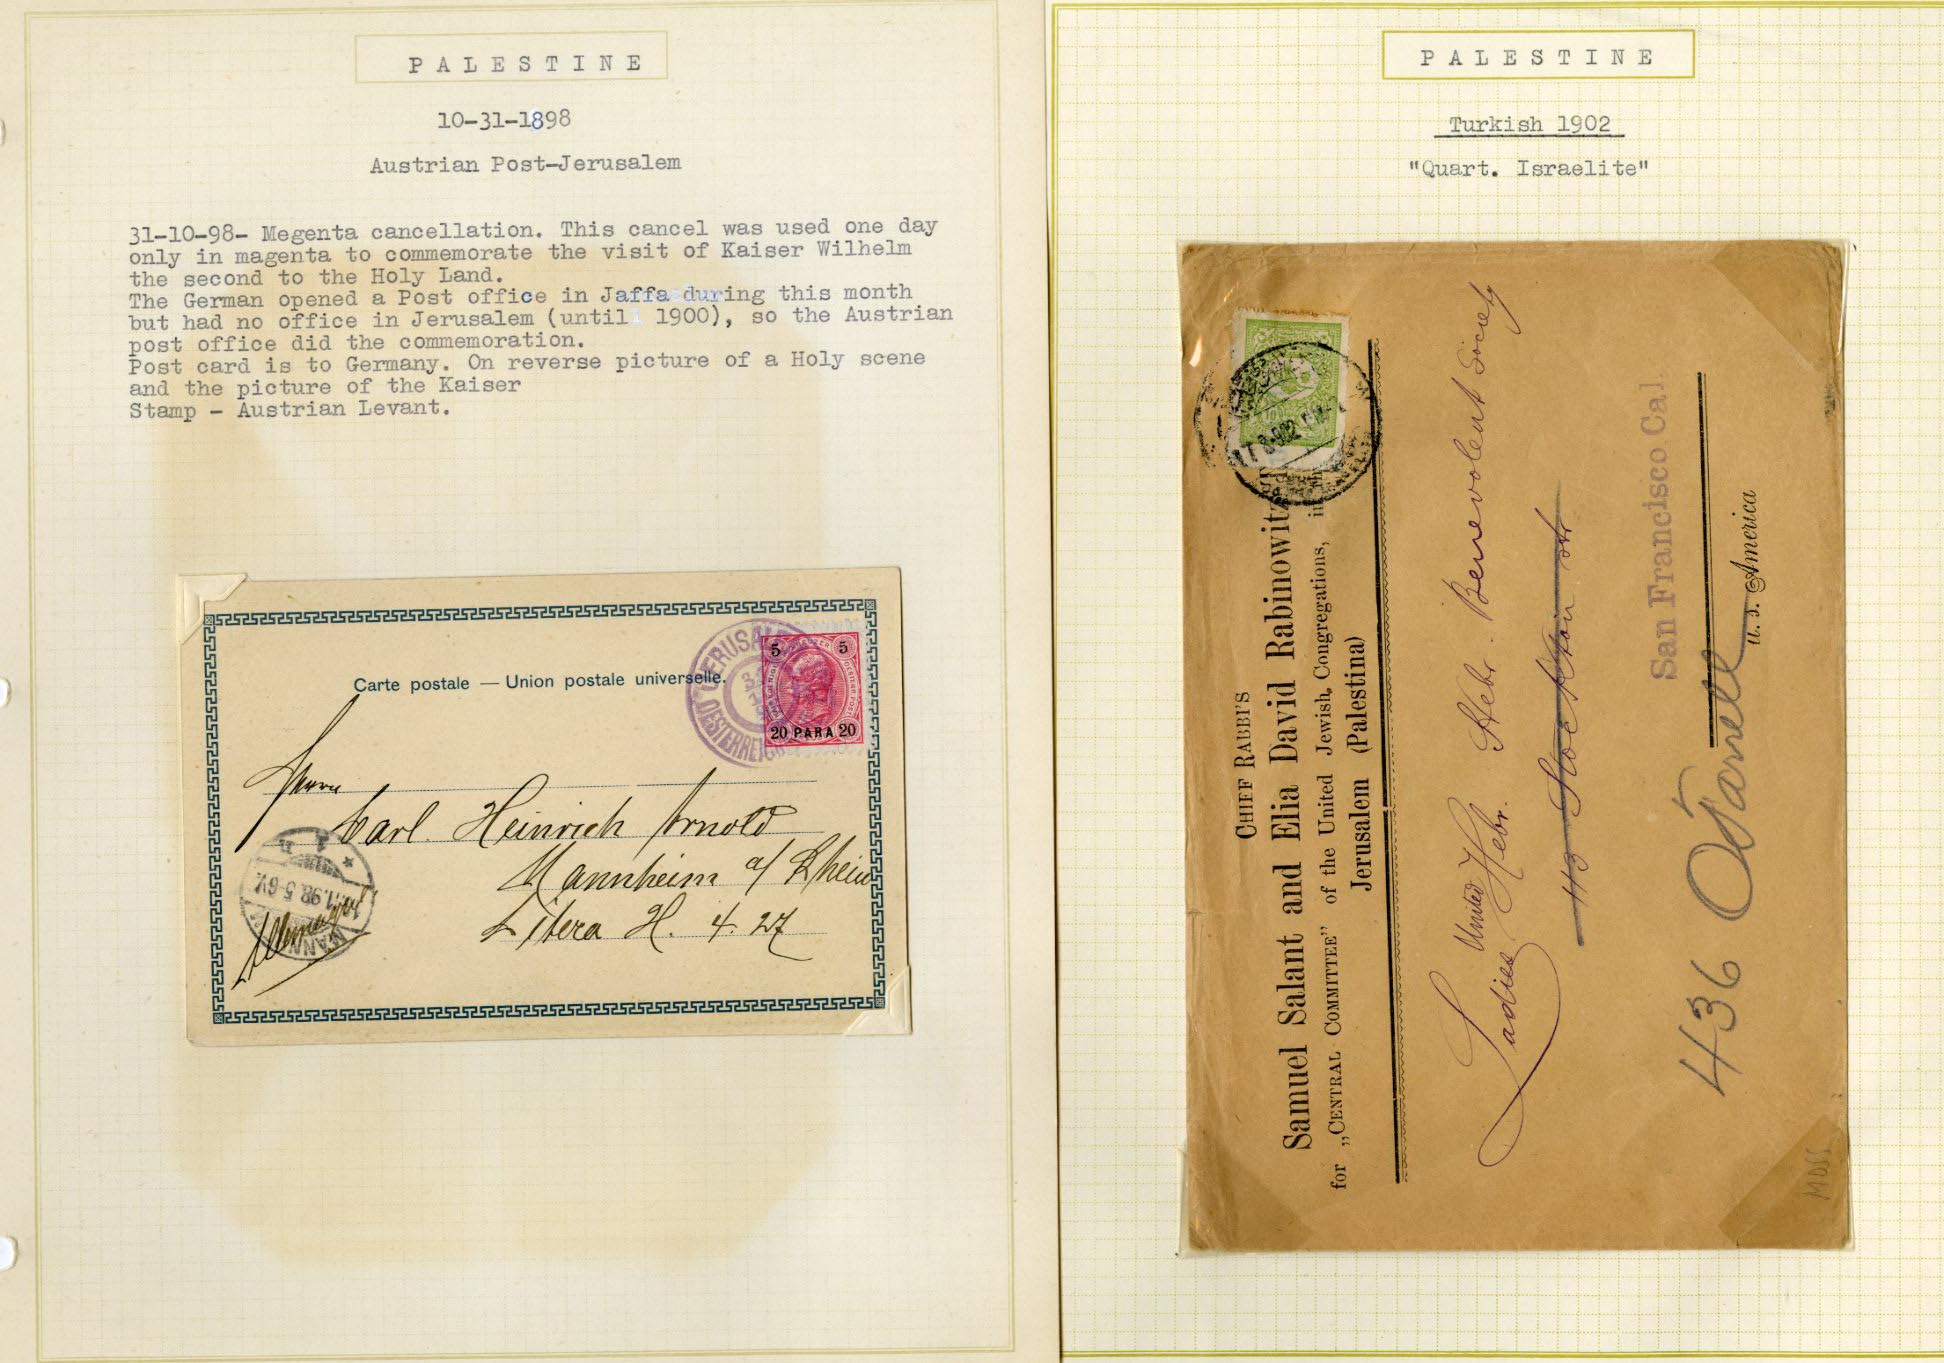 PALESTINE
10-31-1898
Austrian Post-Jerusalem
31-10-98- Megenta cancellation. This cancel was used one day
only in magenta to commemorate the visit of Kaiser Wilhelm
the second to the Holy Land.
The German opened a Post office in Jaffa during this month
but had no office in Jerusalem (until 1900), so the Austrian
post office did the commemoration.
Post card is to Germany. On reverse picture of a Holy scene
and the picture of the Kaiser
Stamp - Austrian Levant.
Carte postale — Union postale universelle.
JERUSALEM
5 5
20 PARA 20
Herrn
Carl Heinrich Arnold
Mannheim a/ Rhein
Litera H. 4. 27
PALESTINE
Turkish 1902
"Quart. Israelite"
CHIEF RABBI'S
Samuel Salant and Elia David Rabinowitz
for „CENTRAL COMMITTEE” of the United Jewish, Congregations, in
Jerusalem (Palestina)
Ladies United Hebr. Hebr. Benevolent Society
113 Stockton str
San Francisco Cal.
436 O'Farrell
U. S. America
MOSS